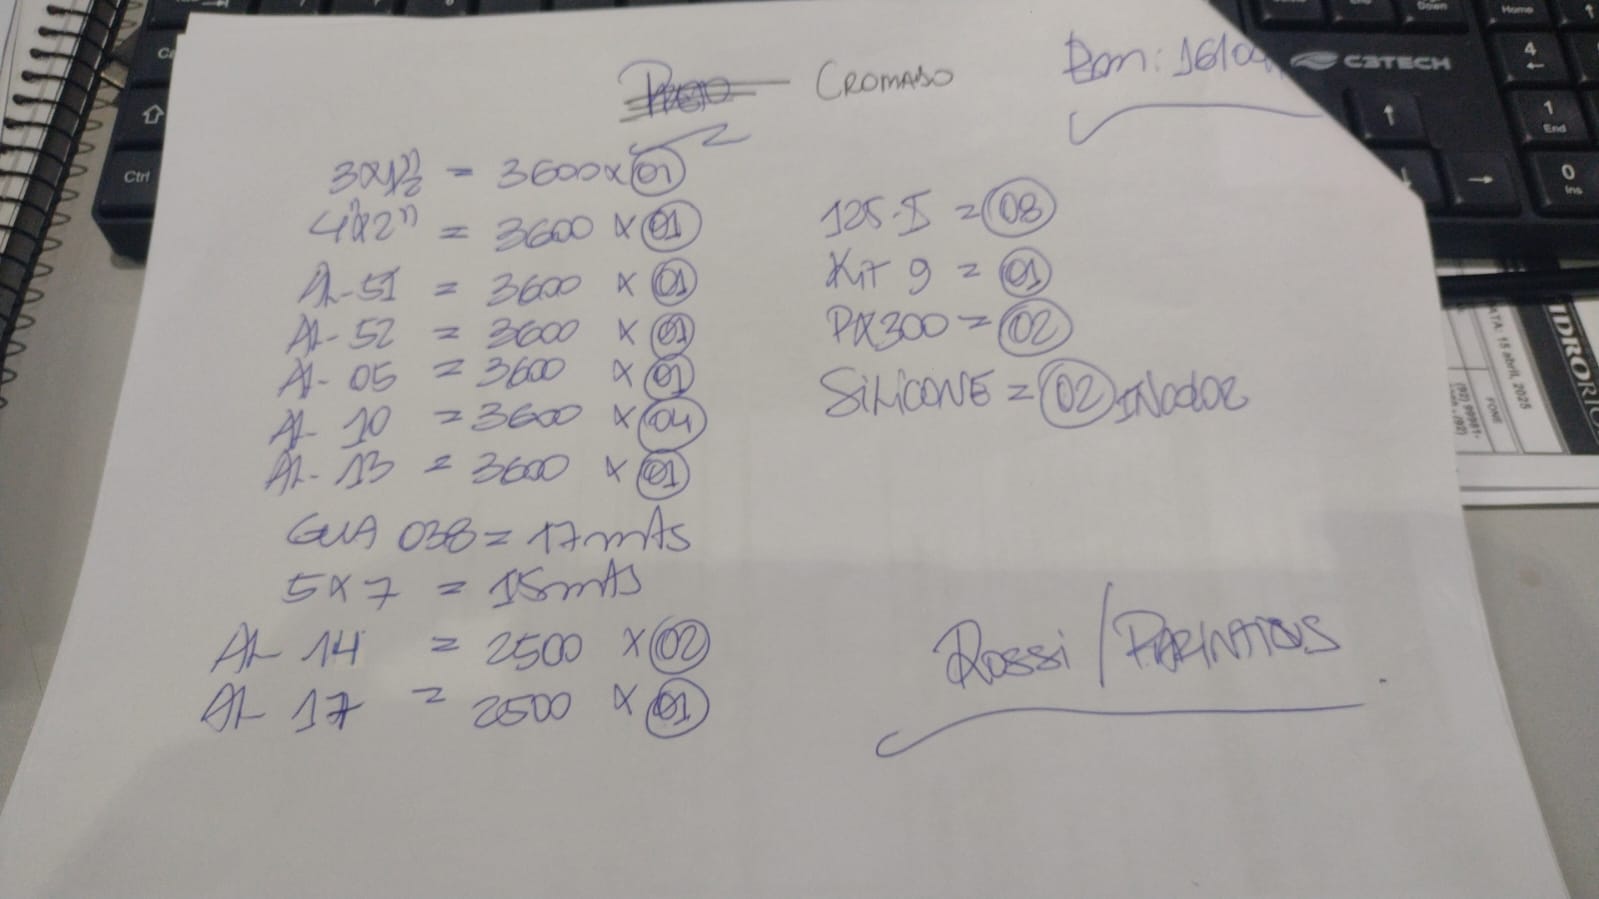 CROMADO
Rom: 16/04
3x1½" = 3600 x 01
4"x2" = 3600 x 01
AL-51 = 3600 x 01
AL-52 = 3600 x 01
AL-05 = 3600 x 01
AL 10 = 3600 x 04
AL-13 = 3600 x 01
GUA 038 = 17mts
5x7 = 15mts
AL 14 = 2500 x 02
AL 17 = 2500 x 01
125-I = 08
Kit 9 = 01
PX300 = 02
SILICONE = 02 INCOLOR
Rossi /
C3TECH
Home
4
1
End
0
Ins
Ctrl
Down
DATA: 15 abril, 2025
FONE
IDRORIO